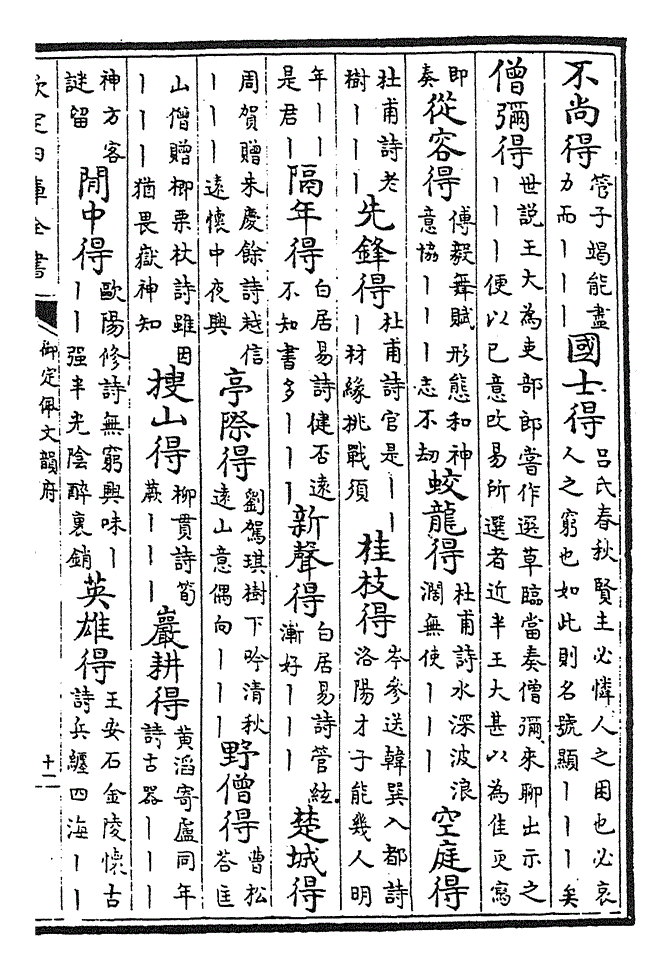 不尚得 管子竭能盡力而丨丨丨 國士得 呂氏春秋賢主必憐人之困也必哀人之窮也如此則名號顯丨丨丨矣
僧彌得 世說王大為吏部郎嘗作選草臨當奏僧彌來聊出示之丨丨丨便以已意改易所選者近半王大甚以為佳更寫
即奏 從容得 傅毅舞賦形態和神意協丨丨丨志不劫 蛟龍得 杜甫詩水深波浪濶無使丨丨丨 空庭得
杜甫詩老樹丨丨丨 先鋒得 杜甫詩官是丨丨丨材緣挑戰須 桂枝得 岑參送韓巽入都詩洛陽才子能幾人明
年丨丨是君丨 隔年得 白居易詩健否遠不知書多丨丨丨 新聲得 白居易詩管絃漸好丨丨丨 楚城得
周賀贈朱慶餘詩越信丨丨丨遠懷中夜興 亭際得 劉駕琪樹下吟清秋遠山意偶向丨丨丨 野僧得 曹松荅匡
山僧贈柳栗杖詩雖因丨丨丨猶畏嶽神知 搜山得 柳貫詩筍蕨丨丨丨 巖耕得 黃滔寄盧同年詩古器丨丨丨
神方客謎留 閒中得 歐陽修詩無窮興味丨丨丨强半光陰醉裏銷 英雄得 王安石金陵懷古詩兵纏四海丨丨
欽定四庫全書 御定佩文韻府 十二